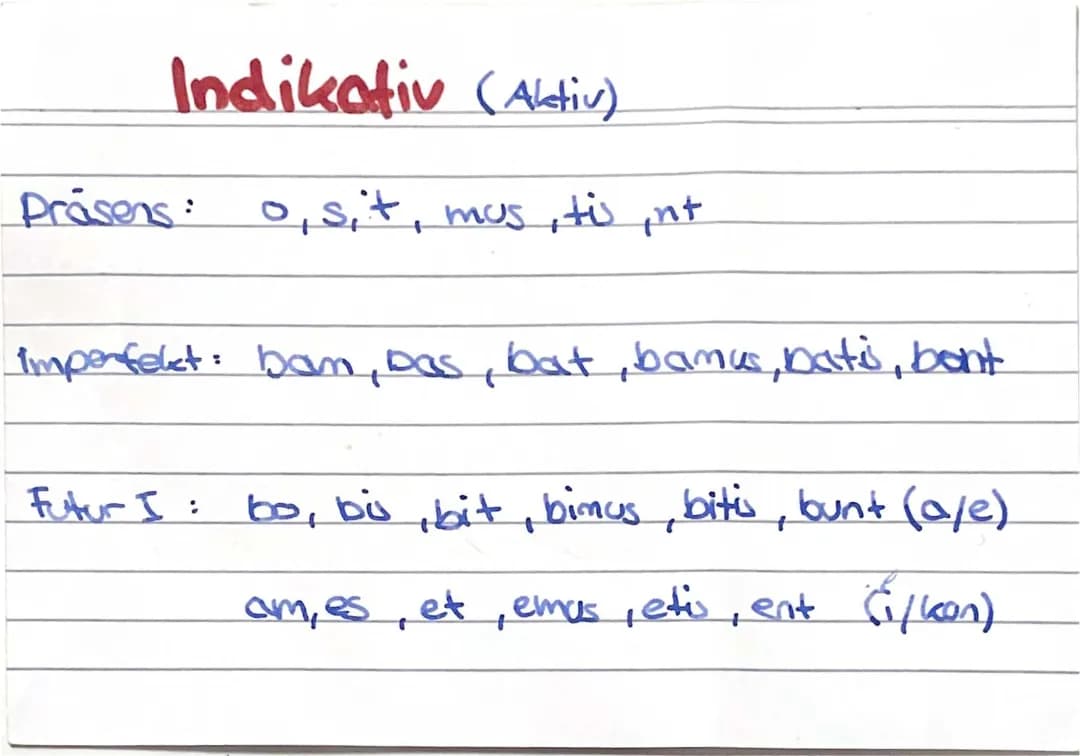 Indikativ (Aktiv)
Präsens: o, s, t, mus, tis, nt
Imperfekt: bam, bas, bat, bamus, batis, bant
Futur I: bo, bis, bit, bimus, bitis, bunt (a/e)
am, es, et, emus, etis, ent (i/kon)